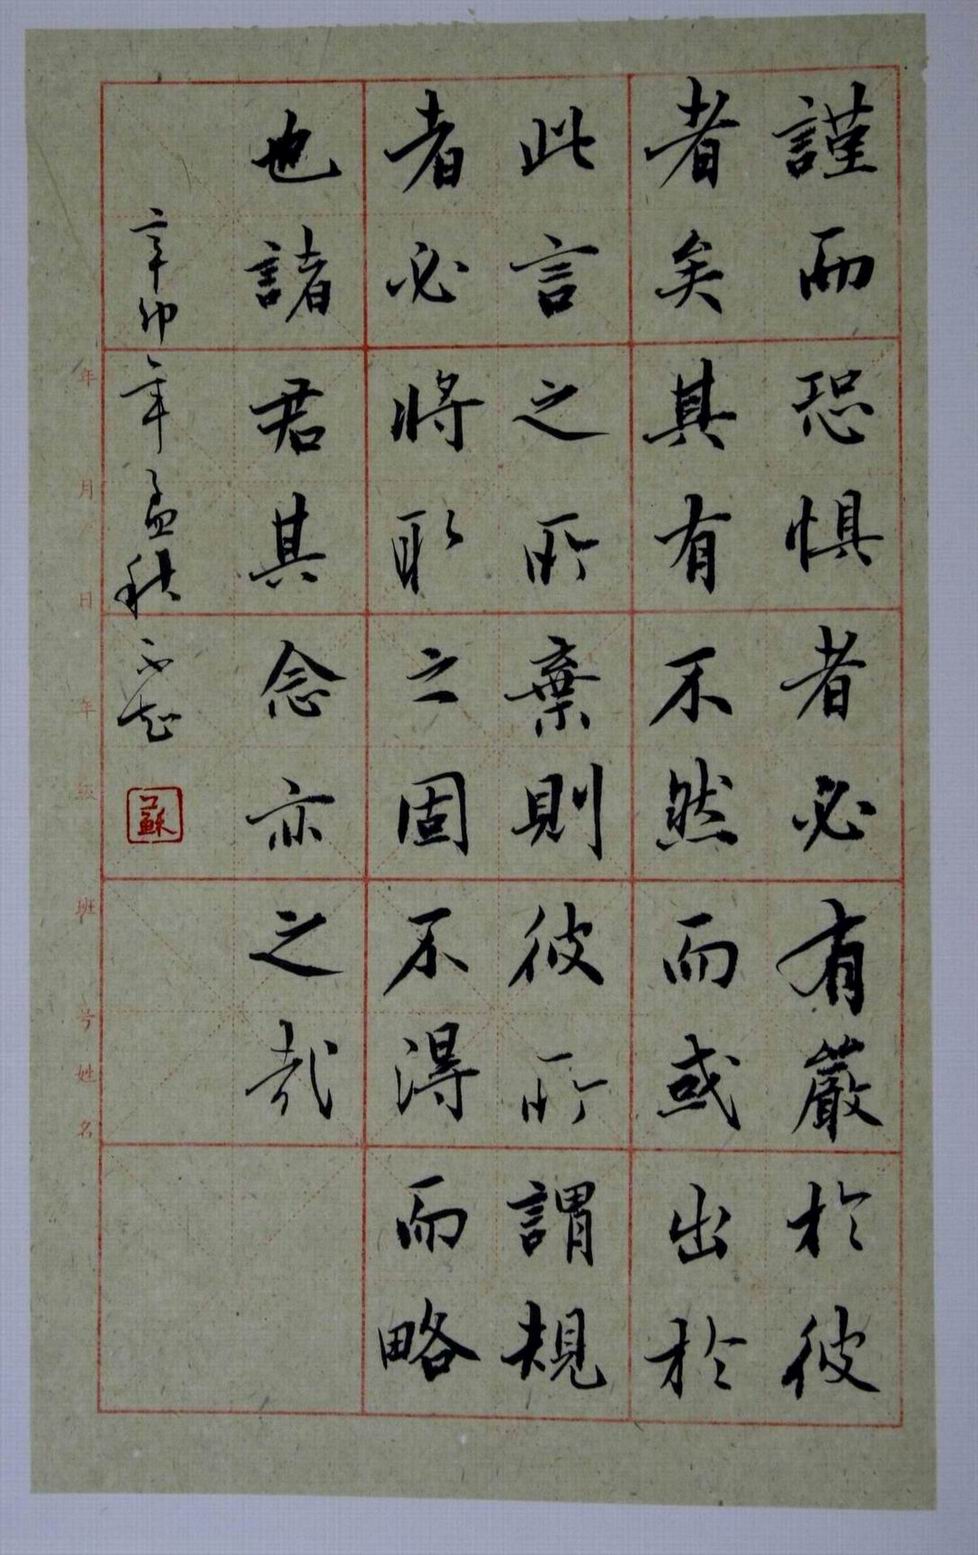 謹而恐懼者必有嚴於彼
者矣其有不然而或出於
此言之所棄則彼所謂規
者必將取之固不得而略
也諸君其念亦之哉
辛卯年孟秋
蘇
年 月 日 年 級 班 号 姓 名